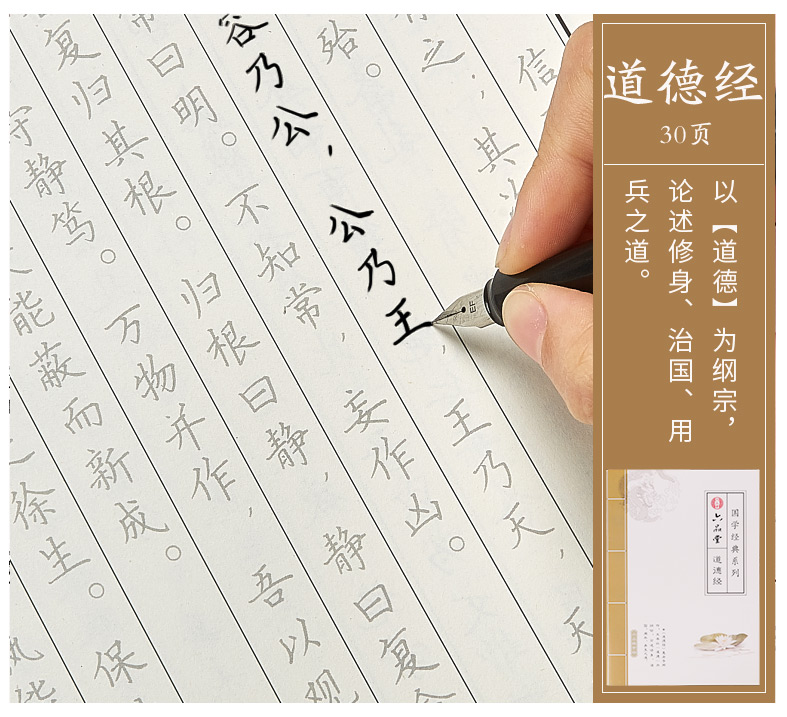 信
之，其
殆。
容乃公，公乃王，王乃天，天
常曰明。不知常，妄作凶。
复归其根。归根曰静，静曰复
守静笃。万物并作，吾以观
能蔽而新成。
徐生。保
道德经
30页
以【道德】为纲宗，
论述修身、治国、用
兵之道。
国学经典系列
六品堂 道德经
EF